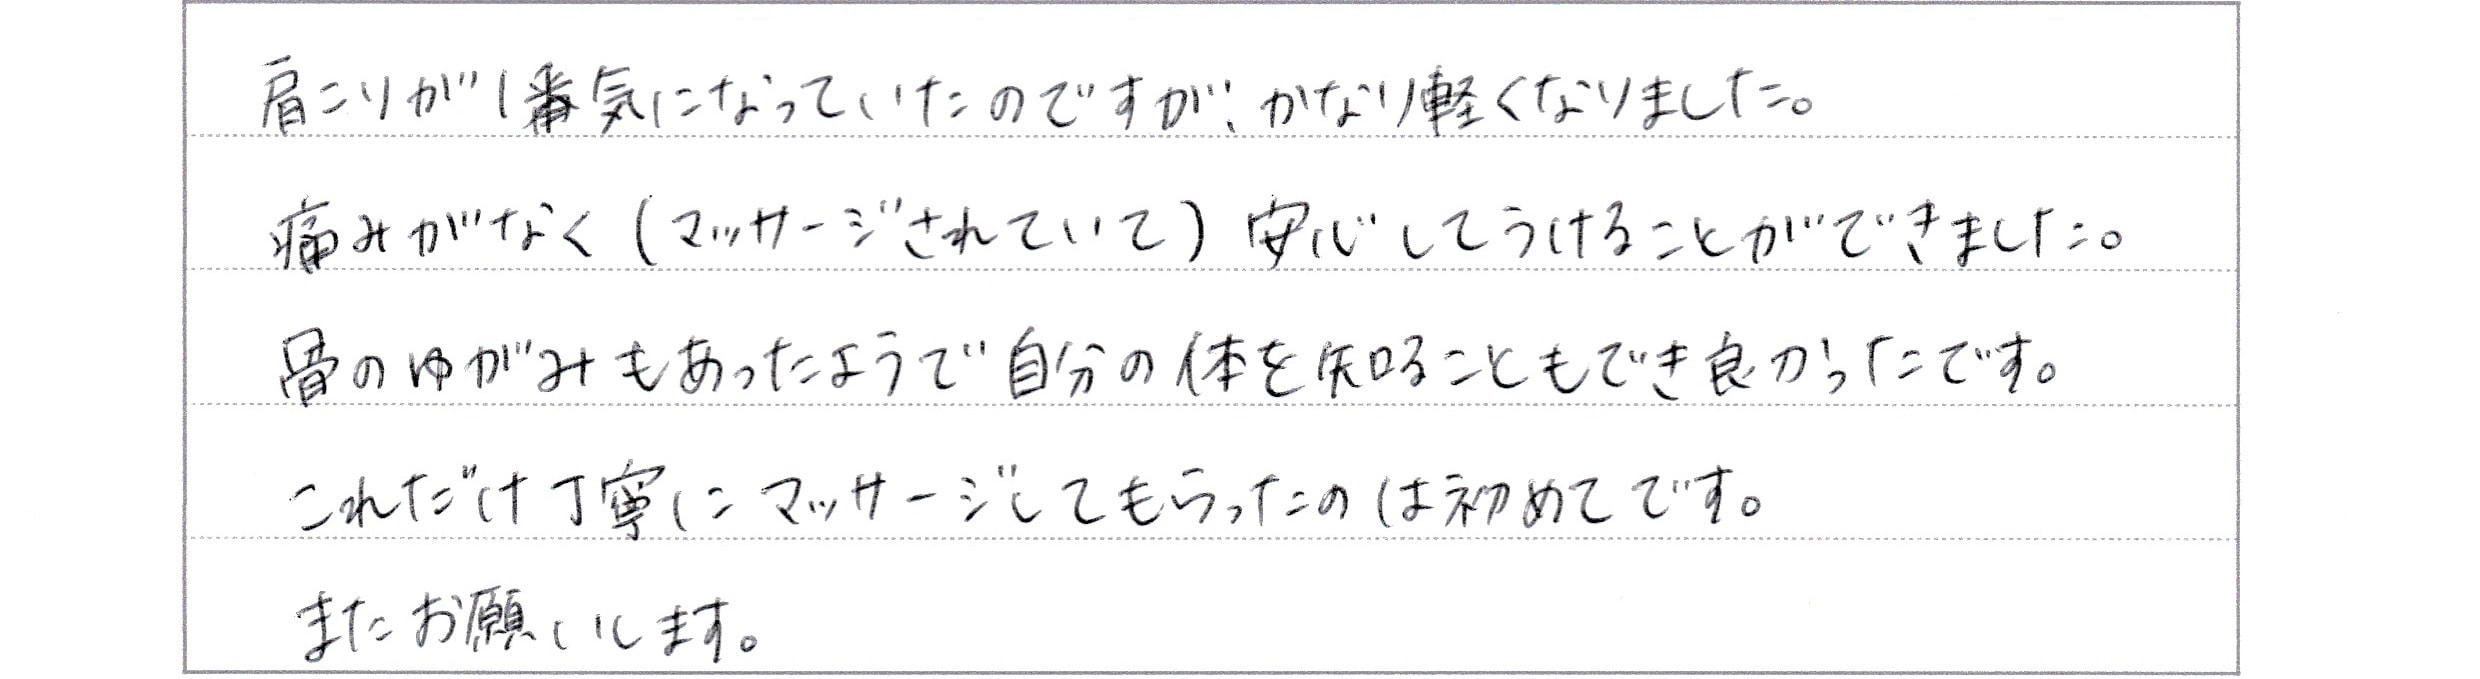 肩こりが1番気になっていたのですが、かなり軽くなりました。
痛みがなく(マッサージされていて)安心してうけることができました。
骨のゆがみもあったようで自分の体を知ることもでき良かったです。
これだけ丁寧にマッサージしてもらったのは初めてです。
またお願いします。